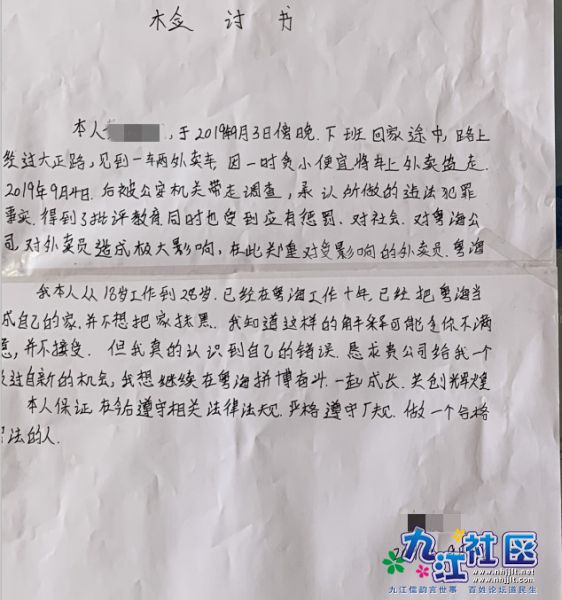 检讨书
本人 ,于2019年9月3日傍晚.下班回家途中,路上
经过大正路,见到一车两外卖车,因一时贪小便宜将车上外卖盗走.
2019年9月4日.后被公安机关带走调查,承认所做的违法犯罪
事实.得到了批评教育同时也受到应有惩罚.对社会.对粤海公
司.对外卖员造成极大影响,在此郑重对受影响的外卖员.粤海
我本人从18岁工作到28岁.已经在粤海工作十年.已经把粤海当
成自己的家,并不想把家抹黑.我知道这样的解释可能令你不满
意,并不接受.但我真的认识到自己的错误.恳求贵公司给我一个
改过自新的机会,我想继续在粤海拼博奋斗.一起成长.共创辉煌
本人保证.在今后遵守相关法律法规.严格遵守厂规.做一个合格
法的人.
九江社区
www.nhjjlt.net
www.nhjjlt.com
九江儒韵言世事 百姓论坛道民生